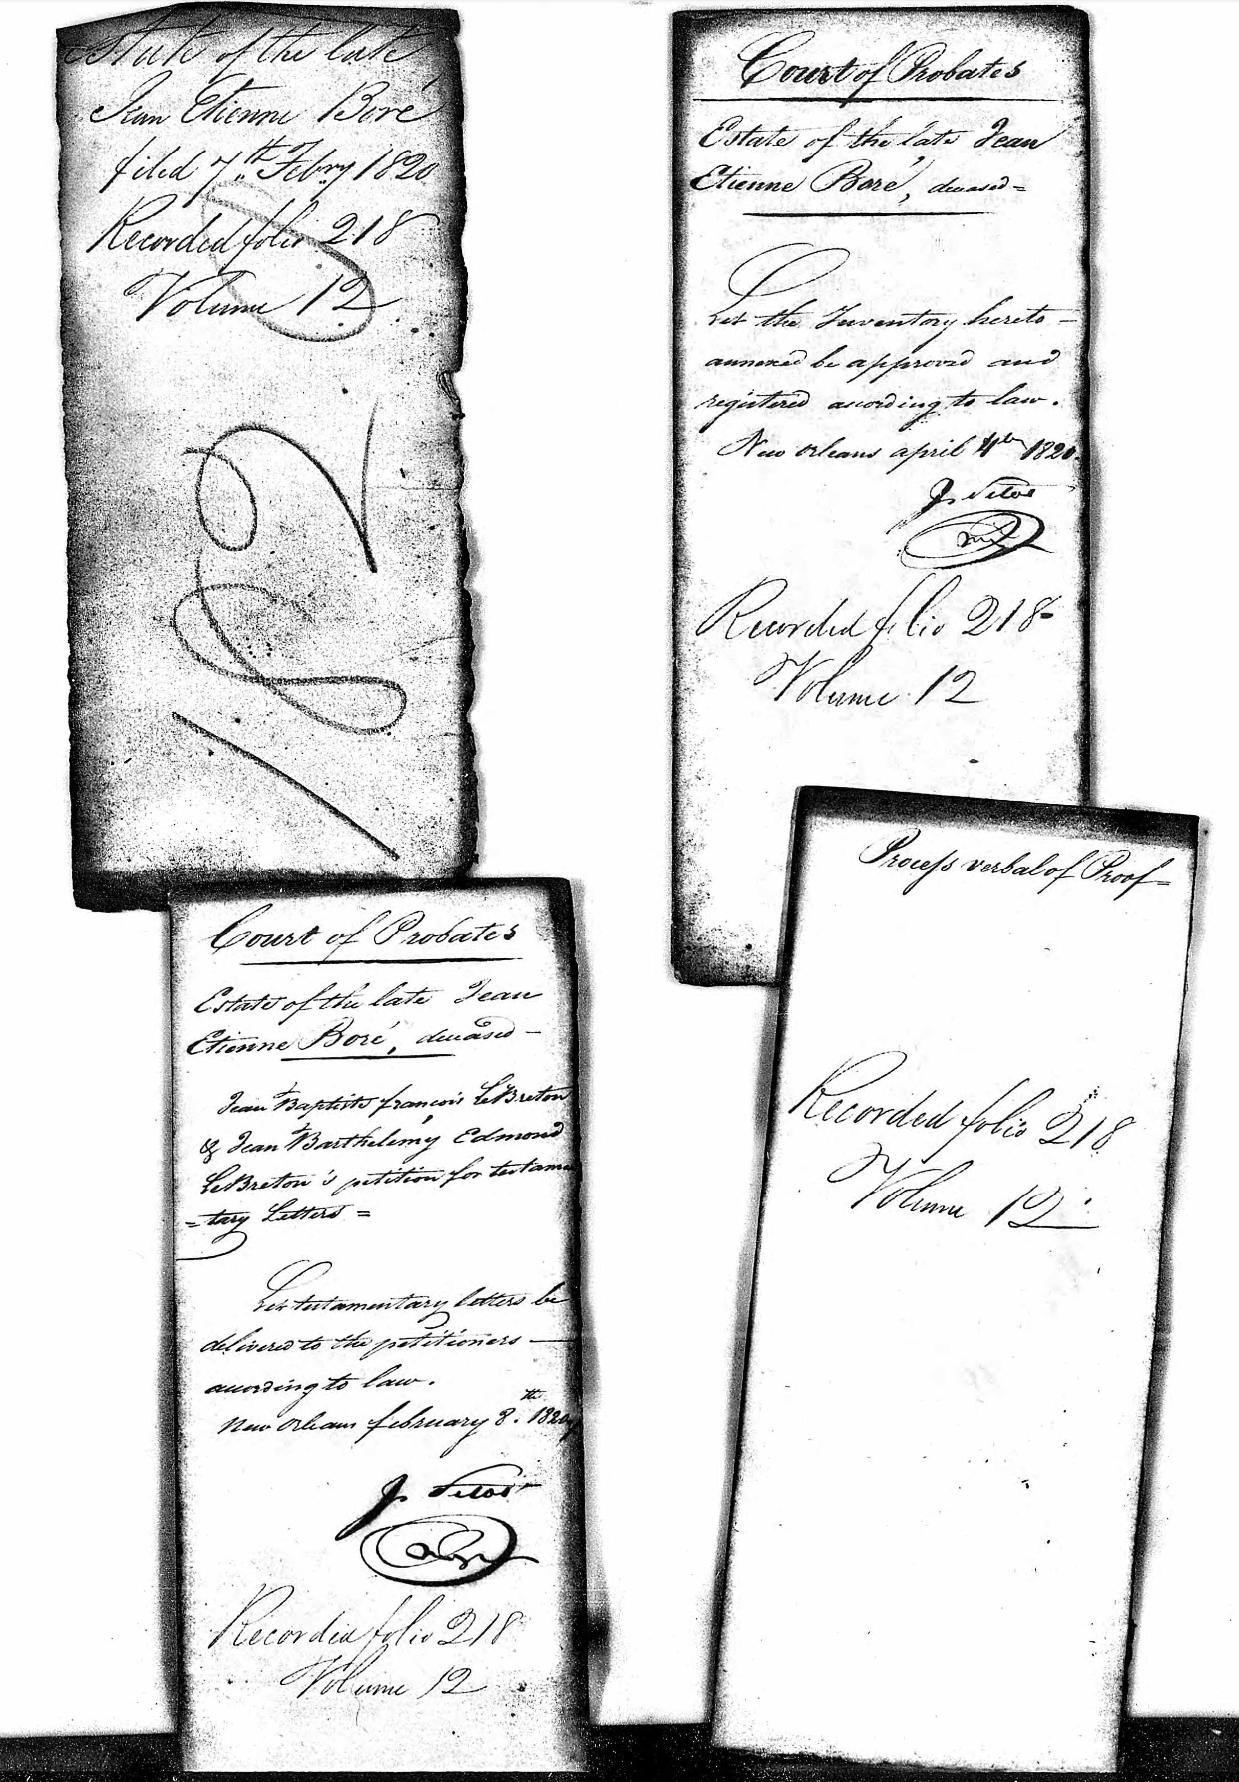 Estate of the late
Jean Etienne Boré
filed 7th Febry 1820
Recorded folio 218
Volume 12
Court of Probates
Estate of the late Jean
Etienne Boré, deceased =
Let the Inventory hereto -
annexed be approved and
registered acording to law.
New Orleans april 4th 1820.
J. Pitot
Recorded folio 218
Volume 12
Court of Probates
Estate of the late Jean
Etienne Boré, deceased -
Jean Baptiste françois LeBreton
& Jean Barthelemy Edmond
LeBreton's petition for testamen
= tary Letters =
Let testamentary letters be
delivered to the petitioners —
acording to law.
New Orleans february 8.th 1820
J. Pitot
Recorded folio 218
Volume 12
Process verbal of Proof =
Recorded folio 218
Volume 12